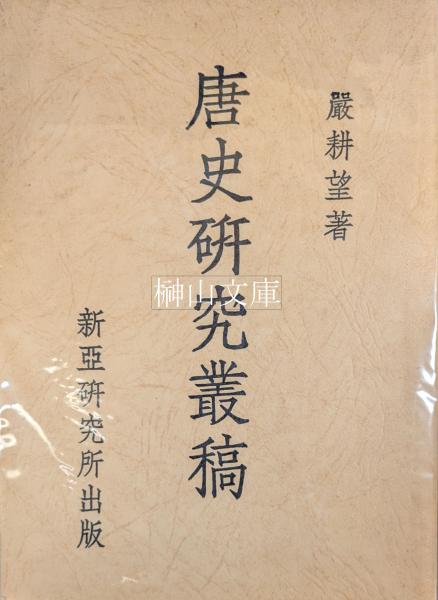 嚴耕望著
唐史研究叢稿
新亞研究所出版
榊山文庫